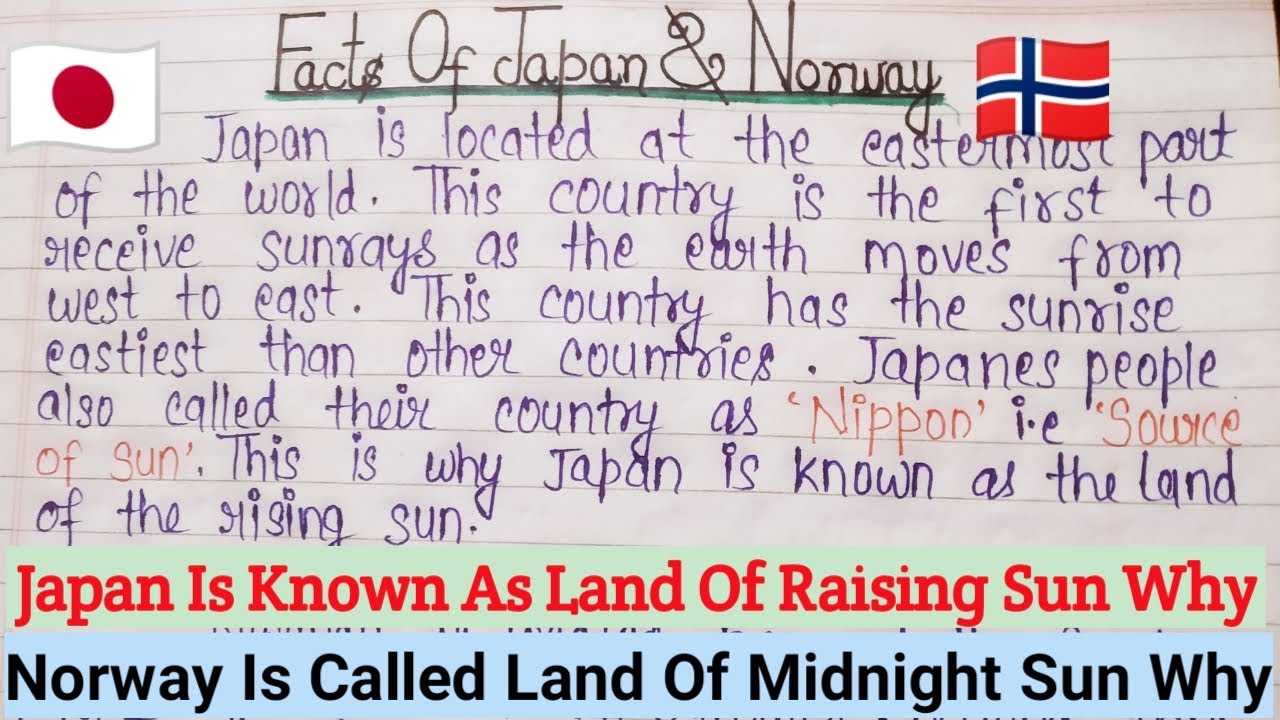 Facts Of Japan & Norway
Japan is located at the eastermost part
of the world. This country is the first to
receive sunrays as the earth moves from
west to east. This country has the sunrise
eastiest than other countries. Japanes people
also called their country as 'Nippon' i.e 'Source
of sun'. This is why Japan is known as the land
of the rising sun.
Japan Is Known As Land Of Raising Sun Why
Norway Is Called Land Of Midnight Sun Why